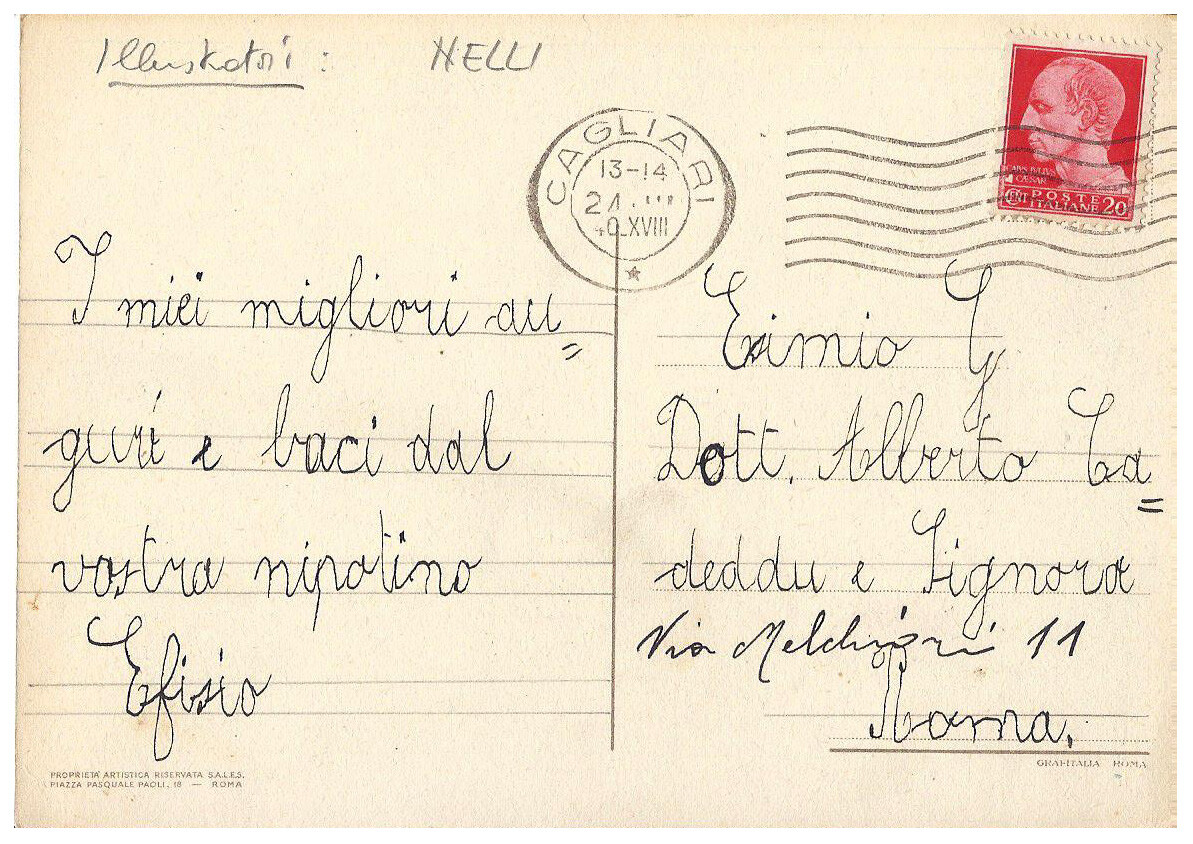 Illustratori: NELLI
CAGLIARI
13-14
21 III
40 XVIII
IVLIVS
CÆSAR
POSTE
ITALIANE 20
I miei migliori au=
guri e baci dal
vostro nipotino
Efisio
Esimio G
Dott. Alberto Ca=
deddu e Signora
Via Melchiorri 11
Roma.
PROPRIETÀ ARTISTICA RISERVATA S.A.L.E.S.
PIAZZA PASQUALE PAOLI, 18 — ROMA
GRAFITALIA ROMA